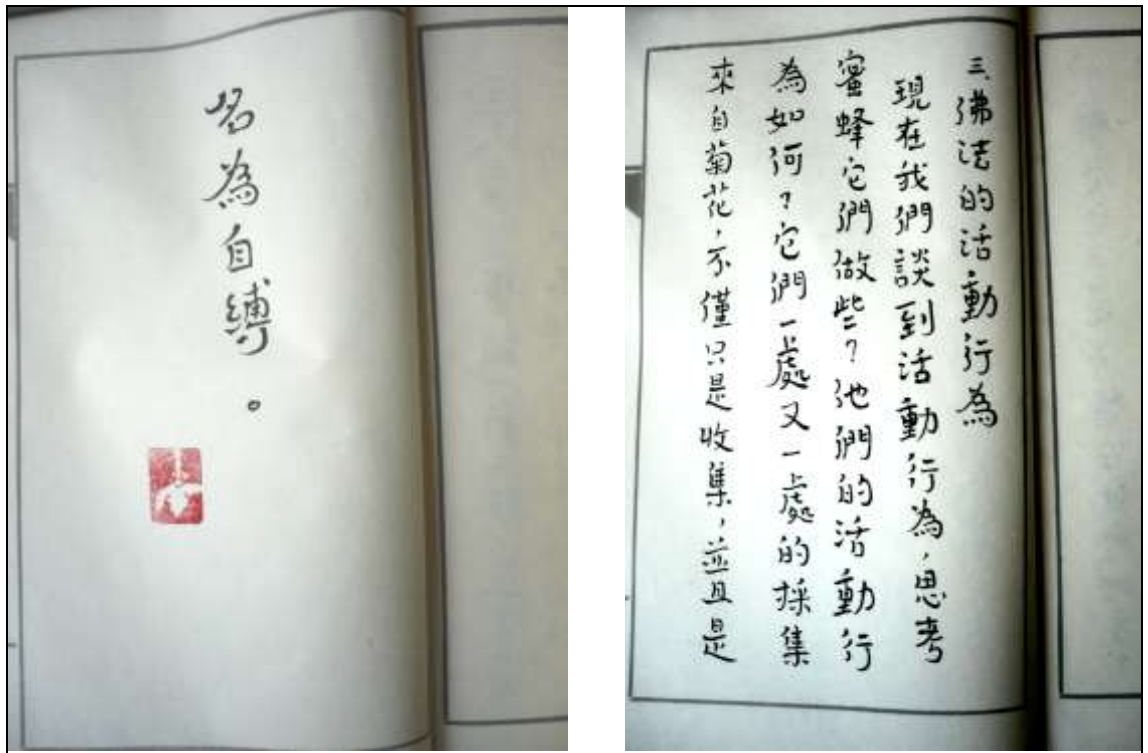 名為自縛。
三、彿法的活動行為
現在我們談到活動行為，思考
蜜蜂它們做些？他們的活動行
為如何？它們一處又一處的採集
來自菊花，不僅只是收集，並且是